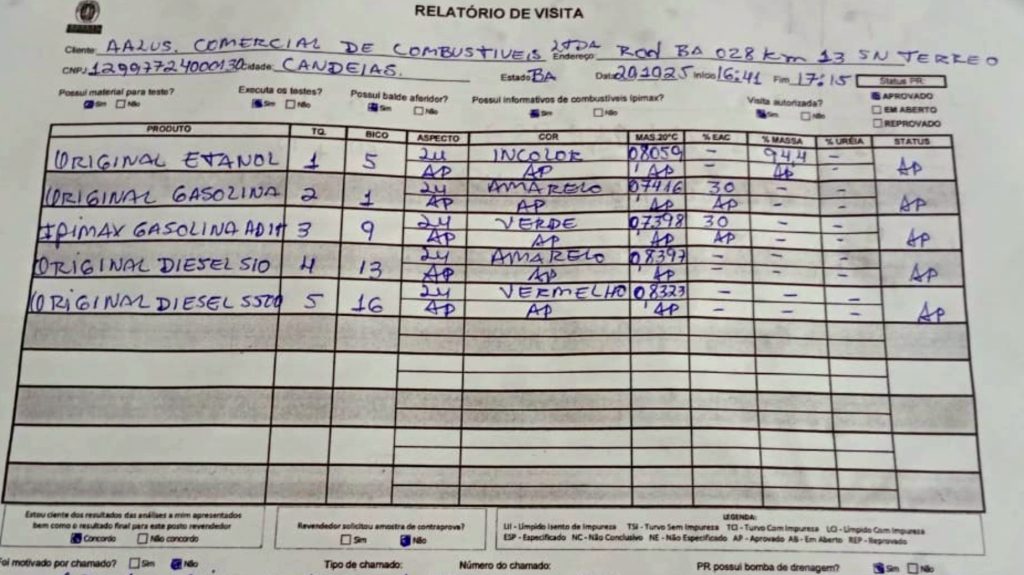 RELATÓRIO DE VISITA
Cliente: AALUS. COMERCIAL DE COMBUSTIVEIS LTDA Endereço: ROD BA 028 Km 13 SN TERREO
CNPJ: 12997724000130 Cidade: CANDEIAS. Estado BA Data 201025 Início 16:41 Fim 17:15 Status PR:
Possui material para teste? Executa os testes? Possui balde aferidor? Possui informativos de combustíveis Ipimax? Visita autorizada? APROVADO
Sim Não Sim Não Sim Não Sim Não Sim Não EM ABERTO
REPROVADO
PRODUTO TQ. BICO ASPECTO COR MAS.20°C % EAC % MASSA % URÉIA STATUS
ORIGINAL ETANOL 1 5 LII INCOLOR 08059 - 94,4 - AP
AP AP AP - AP -
ORIGINAL GASOLINA 2 1 LII AMARELO 07416 30 - - AP
AP AP AP AP - -
IPIMAX GASOLINA ADIT 3 9 LII VERDE 07398 30 - - AP
AP AP AP AP - -
ORIGINAL DIESEL S10 4 13 LII AMARELO 08397 - - - AP
AP AP AP - - -
ORIGINAL DIESEL S500 5 16 LII VERMELHO 08323 - - - AP
AP AP AP - - -
Estou ciente dos resultados das análises a mim apresentados
bem como o resultado final para este posto revendedor
Concordo Não concordo
Revendedor solicitou amostra de contraprova?
Sim Não
LEGENDA:
LII - Límpido Isento de Impureza TSI - Turvo Sem Impureza TCI - Turvo Com Impureza LCI - Límpido Com Impureza
ESP - Especificado NC - Não Conclusivo NE - Não Especificado AP - Aprovado AB - Em Aberto REP - Reprovado
Foi motivado por chamado? Sim Não Tipo de chamado: Número do chamado: PR possui bomba de drenagem? Sim Não